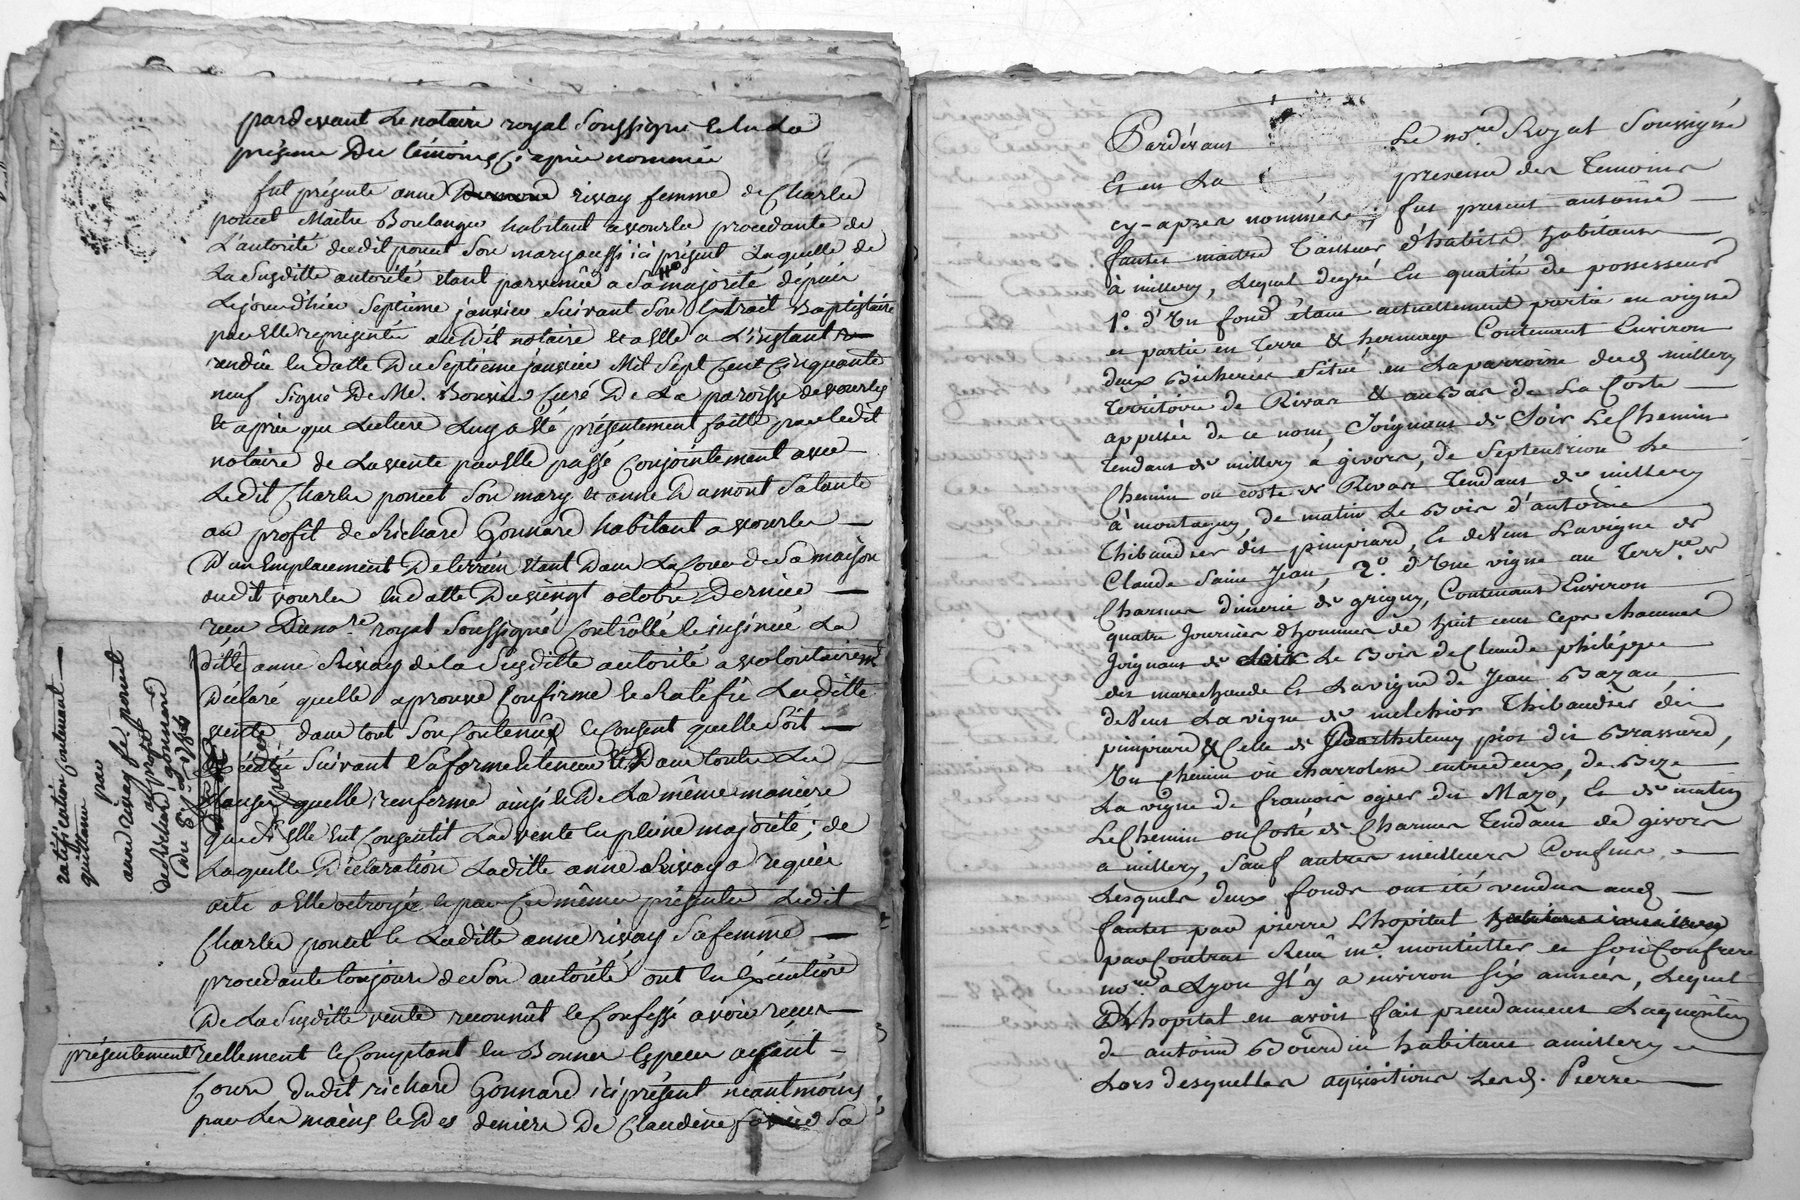 pardevant Le notaire royal Soussigné et en La
présence Des témoins Cy après nommés
fut présente anne rivay femme de Charles
poncet Maitre Boulanger habitant a vourles procedante de
L'autorité dudit poncet Son mary aussi ici présent Laquelle de
La Susditte autorité étant parvenüe a Sa majorité dépuis
Le jour d'hier Septième janvier Suivant Son Extrait Baptistaire
par Elle representé audit notaire et a Elle a L'instant
rendüe en datte Du Septième janvier Mil Sept Cent Cinquante
neuf Signé De Me. Bouvier Curé De La paroisse de vourles
et après que Lecture Luy a été présentement faitte par ledit
notaire de La vente par Elle passé Conjointement avec
Ledit Charles poncet Son mary et anne Dumont Sa tante
au profit de Richard Gonnard habitant a vourles
D'un Emplacement De terrein étant Dans La Cour de Sa maison
audit vourles en datte Du vingt octobre Dernier
reçu Du no.re royal Soussigné Contrôllé et insinué La
ditte anne Rivay de La Susditte autorité a volontairemt
Déclaré quelle aprouve Confirme et Ratéfie Laditte
vente dans tout Son Contenüe et Consent quelle Soit
Exécutée Suivant Sa forme et teneur et Dans toutes Les
Clauses quelle renferme ainsi et De La même manière
que Si Elle Eut Consentit Lad vente en pleine majorité; de
Laquelle Déclaration Laditte anne Rivay a requis
acte a Elle octroyé et par Ces mêmes présentes Ledit
Charles poncet et Laditte anne rivay Sa femme
procedante toujours de Son autorité ont en Exécution
De La Susditte vente reconnut et Confessé avoir reçus
présentement réellement et Comptant en Bonnes Espèces ayant
Cours dudit richard Gonnard ici présent néantmoins
par Les mains et Des deniers De Claudine Sa
ratiffication Contenant
quittance par
anne rivay fe. poncet
a profit
de Richard gonnard
Du 8e. jer 1784
Pardevant Le nore. Royal Soussigné
Et en La presence des Temoins
cy-apres nommés; fut present antoine
fautes maitre Tailleur d'habits habitant
à millery, Lequel degré En qualité de possesseur
1o. d'Un fond étant actuellement partie en vigne
et partie en Terre & hermage Contenant Environ
deux Bicherées Situé en La parroisse dud millery
Territoire de Rivat & au Bas de La Coste
appellée de ce nom, Joignant de Soir Le Chemin
Tendant de millery a givors, de Septentrion Le
Chemin ou coste de Rivat Tendant de millery
à montagny, de matin Le Bois d'antoine
Thibaudier dit pimpiard, Et de Vent La vigne de
Claude Saint Jean, 2o. d'Une vigne au Terrre. de
Charmes dimerie de grigny, Contenant Environ
quatre Journées d'hommes de huit cens ceps chacune
Joignant de Le Bois de Claude philippe
des marechaude Et La vigne de Jean Bazau,
de Vent La vigne de melchior Thibaudier dit
pimpiard, & Celle de Barthelemy piot dit Brassard,
Un Chemin ou charroliere entredeux, de Bize
La vigne de françois ogier dit Mazo, Et de matin
Le Chemin ou Coste de Charmes Tendant de givors
a millery, Sauf autres meilleurs Confins,
Lesquels deux fonds ont été vendus aud
fautes par pierre Lhopital
par Contrat Reçû me. montellier et Son Confrere
nore. a Lyon Il y a environ Six années, Lequel
Lhopital en avoit fait precedament Laquisition
de antoine Bourdin habitant a millery
Lors desquelles aquisitions Led. Pierre